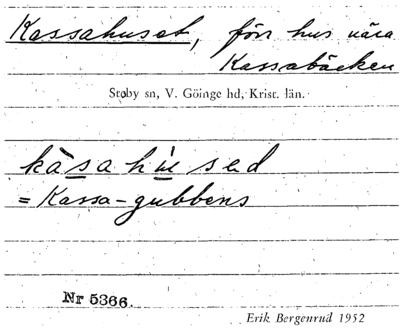 Kassahuset, förr hus nära
Kassabäcken
Stoby sn, V. Göinge hd, Krist. län.
kàsa hùsed
= Kassa-gubbens
Nr 5366.
Erik Bergenrud 1952